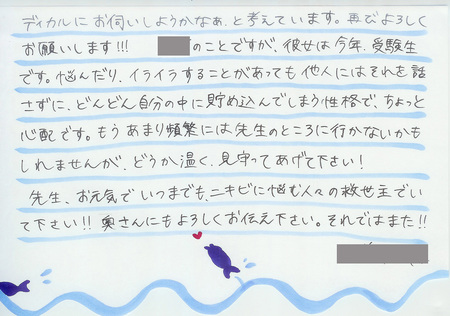 ディカルにお伺いしようかなぁ、と考えています。再びよろしく
お願いします!!!
のことですが、彼女は今年、受験生
です。悩んだり、イライラすることがあっても他人にはそれを話
さずに、どんどん自分の中に貯め込んでしまう性格で、ちょっと
心配です。もうあまり頻繁には先生のところに行かないかも
しれませんが、どうか温く、見守ってあげて下さい!
先生、お元気でいつまでも、ニキビに悩む人々の救世主でい
て下さい!!奥さんにもよろしくお伝え下さい。それではまた!!